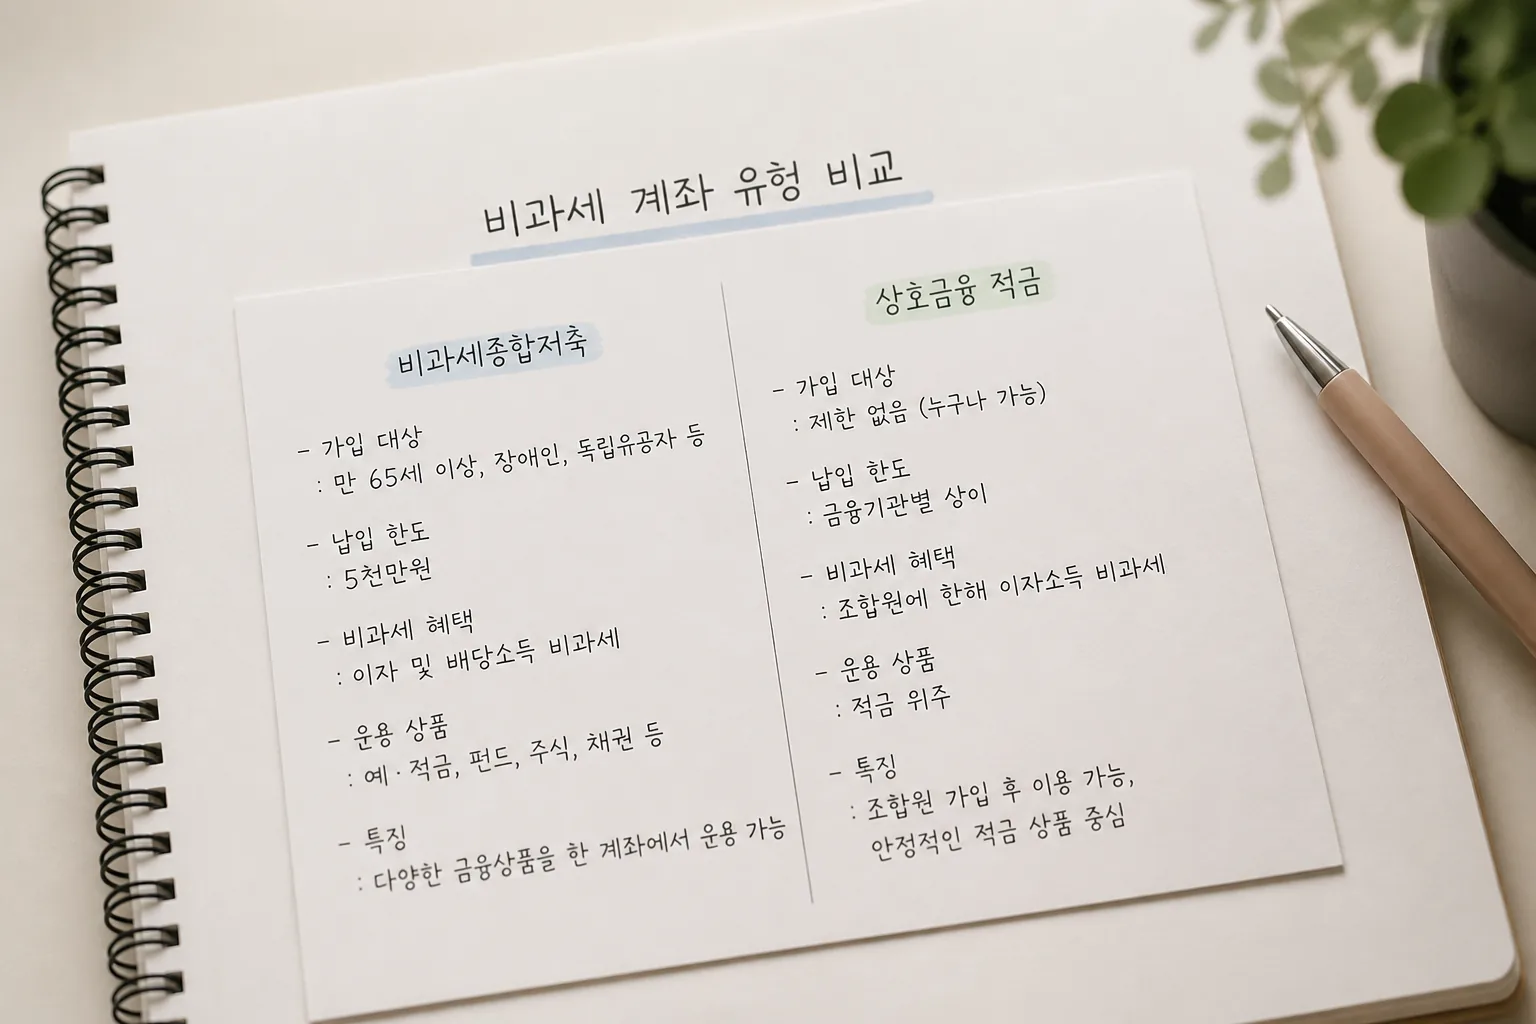 비과세 계좌 유형 비교
비과세종합저축
- 가입 대상
: 만 65세 이상, 장애인, 독립유공자 등
- 납입 한도
: 5천만원
- 비과세 혜택
: 이자 및 배당소득 비과세
- 운용 상품
: 예·적금, 펀드, 주식, 채권 등
- 특징
: 다양한 금융상품을 한 계좌에서 운용 가능
상호금융 적금
- 가입 대상
: 제한 없음 (누구나 가능)
- 납입 한도
: 금융기관별 상이
- 비과세 혜택
: 조합원에 한해 이자소득 비과세
- 운용 상품
: 적금 위주
- 특징
: 조합원 가입 후 이용 가능,
안정적인 적금 상품 중심